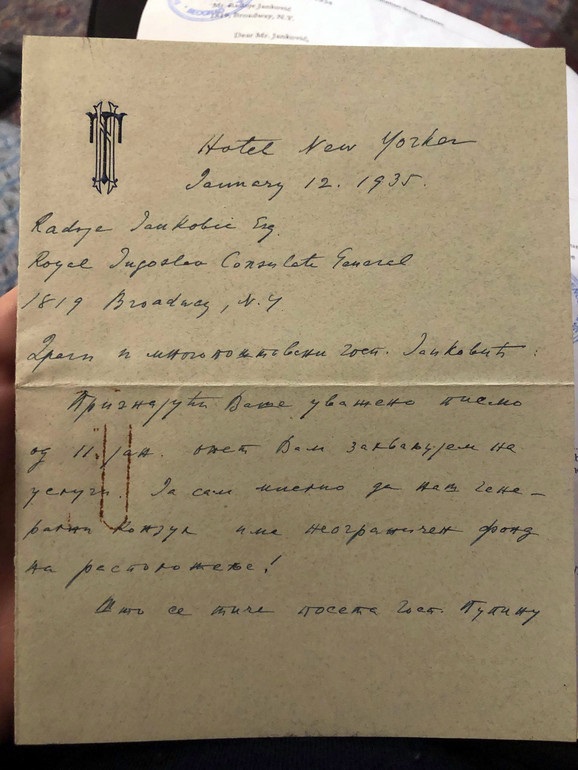 1819, Broadway, N.Y.
Dear Mr. Janković,
Hotel New Yorker
January 12. 1935.
Radoje Jankovic Esq.
Royal Jugoslav Consulate General
1819 Broadway, N.Y
Драги и многопоштовани госп. Јанковић:
Признајући Ваше уважено писмо
од 11. јан. опет Вам захваљујем на
услуги. Ја сам мислио да наш гене-
рални Конзул има неограничен фонд
на расположење!
Што се тиче посета госп. Пупину